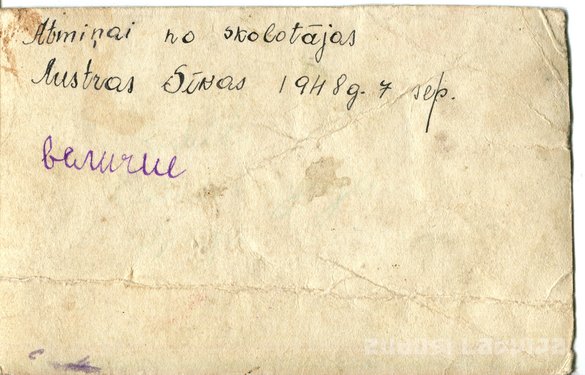 Atmiņai no skolotājas
Austras Sīkas 1948g. 7 sep.
величие